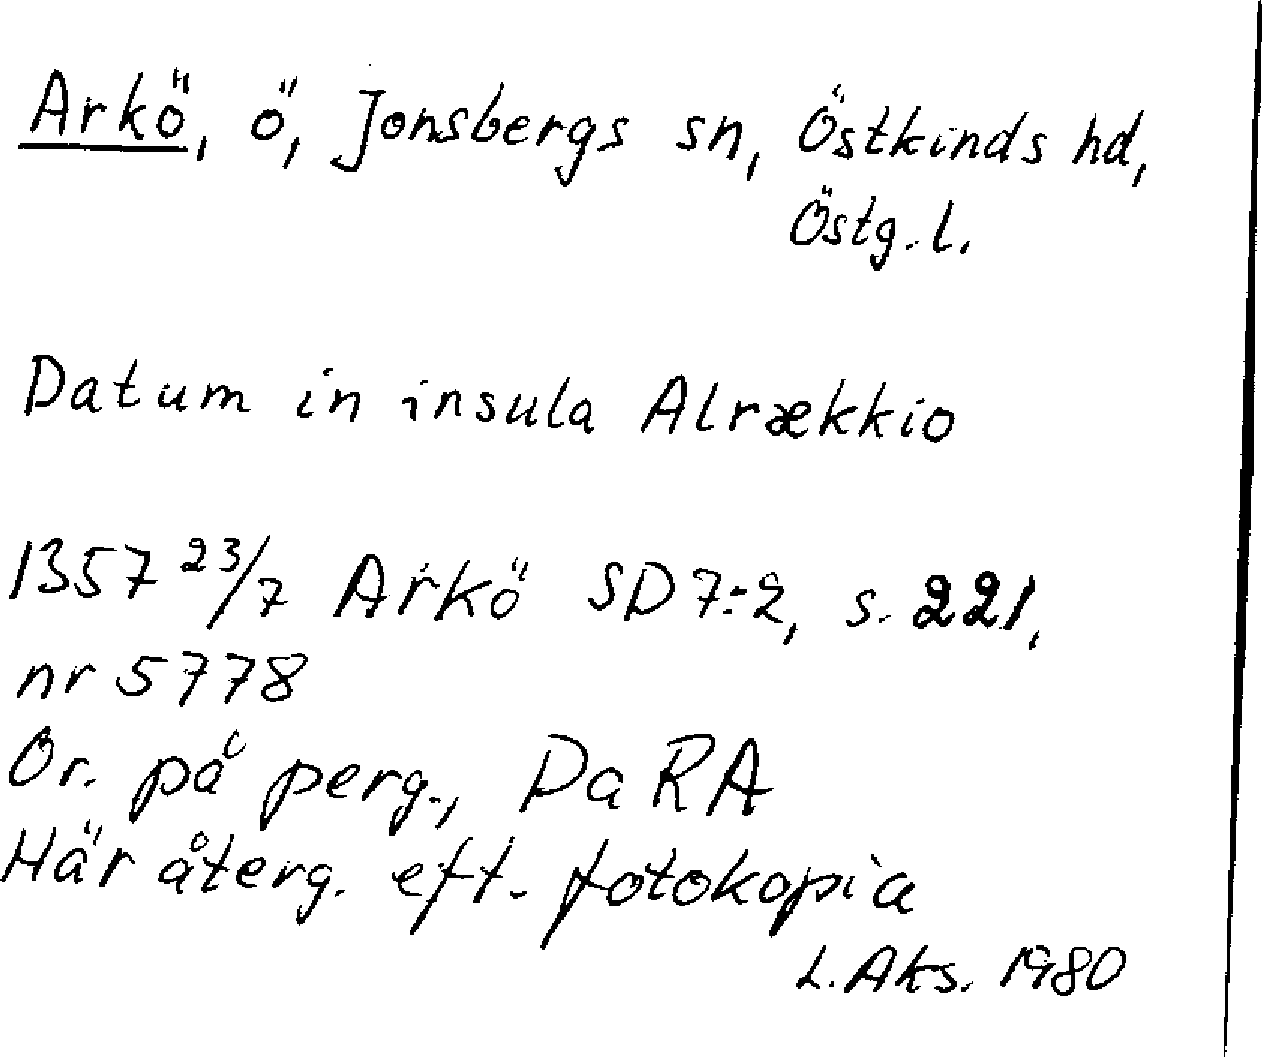 Arkö, ö, Jonsbergs sn, Östkinds hd,
Östg. l.
Datum in insula Alrækkio
1357 23/7 Arkö SD 7:2, s. 221,
nr 5778
Or. på perg., Da RA
Här återg. eft. fotokopia
L. Aks. 1980